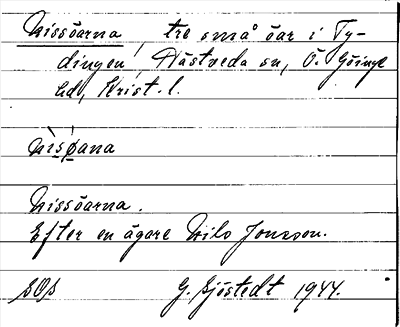 Nissöarna, tre små öar i Ty-
dingen, Hästveda sn, Ö. Göinge
hd, Krist. l.
Nìsø̀ana
Nissöarna.
Efter en ägare Nils Jonsson.
G. Sjöstedt 1944.